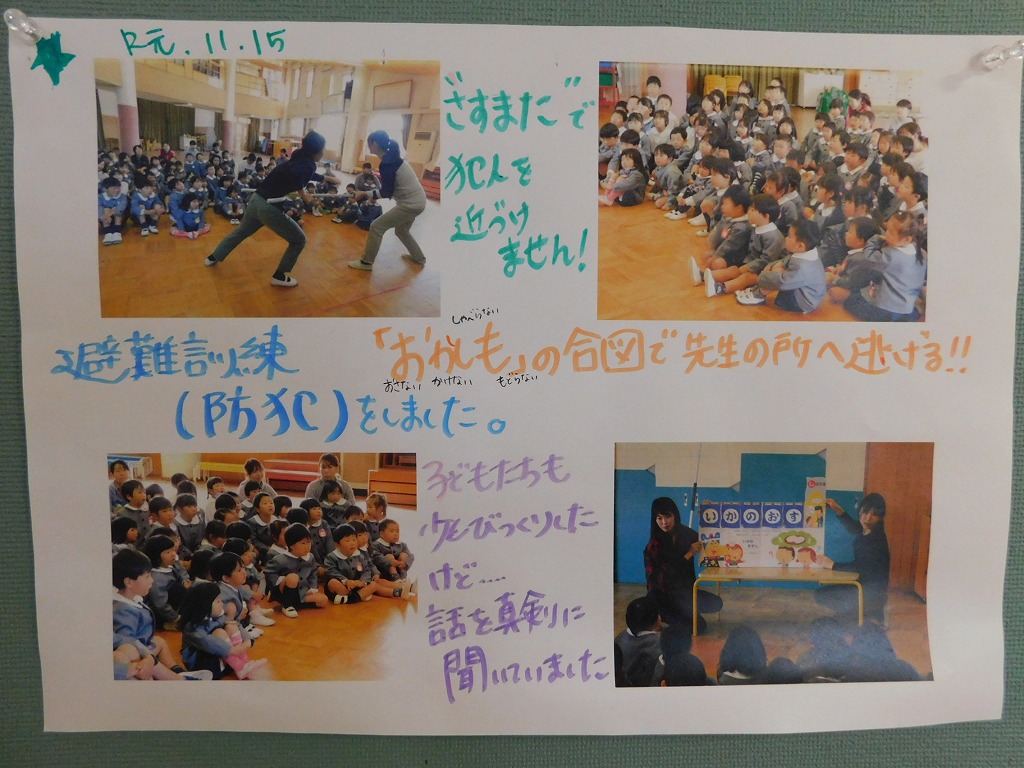 R元.11.15
"さすまた"で
犯人を
近づけ
ません!
避難訓練
(防犯)をしました。
しゃべらない
「おかしも」の合図で先生の所へ逃げる!!
おさない かけない もどらない
子どもたちも
少しびっくりした
けど……
話を真剣に
聞いていました
いかのおす